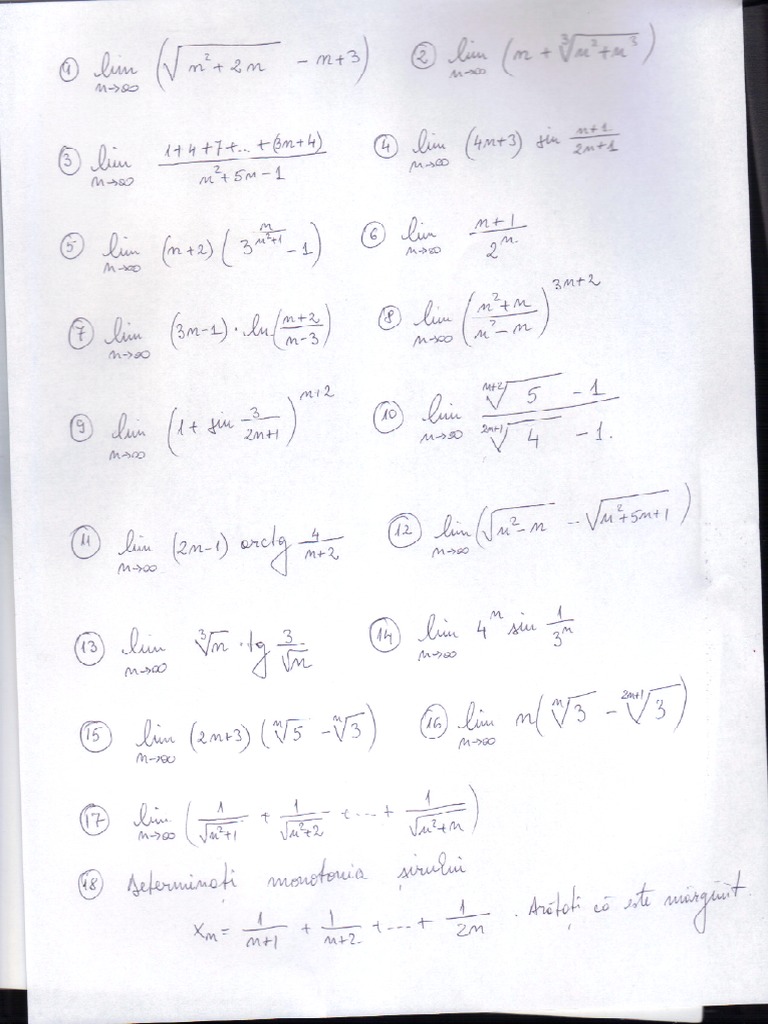 ① lim_{n→∞} (√(n²+2n) - n+3) ② lim_{n→∞} (n + ∛(n²+n³))
③ lim_{n→∞} (1+4+7+...+(3n+4))/(n²+5n-1) ④ lim_{n→∞} (4n+3) sin (n+1)/(2n+1)
⑤ lim_{n→∞} (n+2)(3^{n/(n²+1)} - 1) ⑥ lim_{n→∞} (n+1)/2^n
⑦ lim_{n→∞} (3n-1)·ln((n+2)/(n-3)) ⑧ lim_{n→∞} ((n²+n)/(n²-n))^{3n+2}
⑨ lim_{n→∞} (1 + sin 3/(2n+1))^{n+2} ⑩ lim_{n→∞} (ⁿ⁺²√5 - 1)/(²ⁿ⁺¹√4 - 1).
⑪ lim_{n→∞} (2n-1) arctg 4/(n+2) ⑫ lim_{n→∞} (√(n²-n) - √(n²+5n+1))
⑬ lim_{n→∞} ∛n · tg 3/√n ⑭ lim_{n→∞} 4^n sin 1/3^n
⑮ lim_{n→∞} (2n+3)(ⁿ√5 - ⁿ√3) ⑯ lim_{n→∞} n(ⁿ√3 - ²ⁿ⁺¹√3)
⑰ lim_{n→∞} (1/√(n²+1) + 1/√(n²+2) + ... + 1/√(n²+n))
⑱ Determinați monotonia șirului
x_n = 1/(n+1) + 1/(n+2) + ... + 1/2n . Arătați că este mărginit.